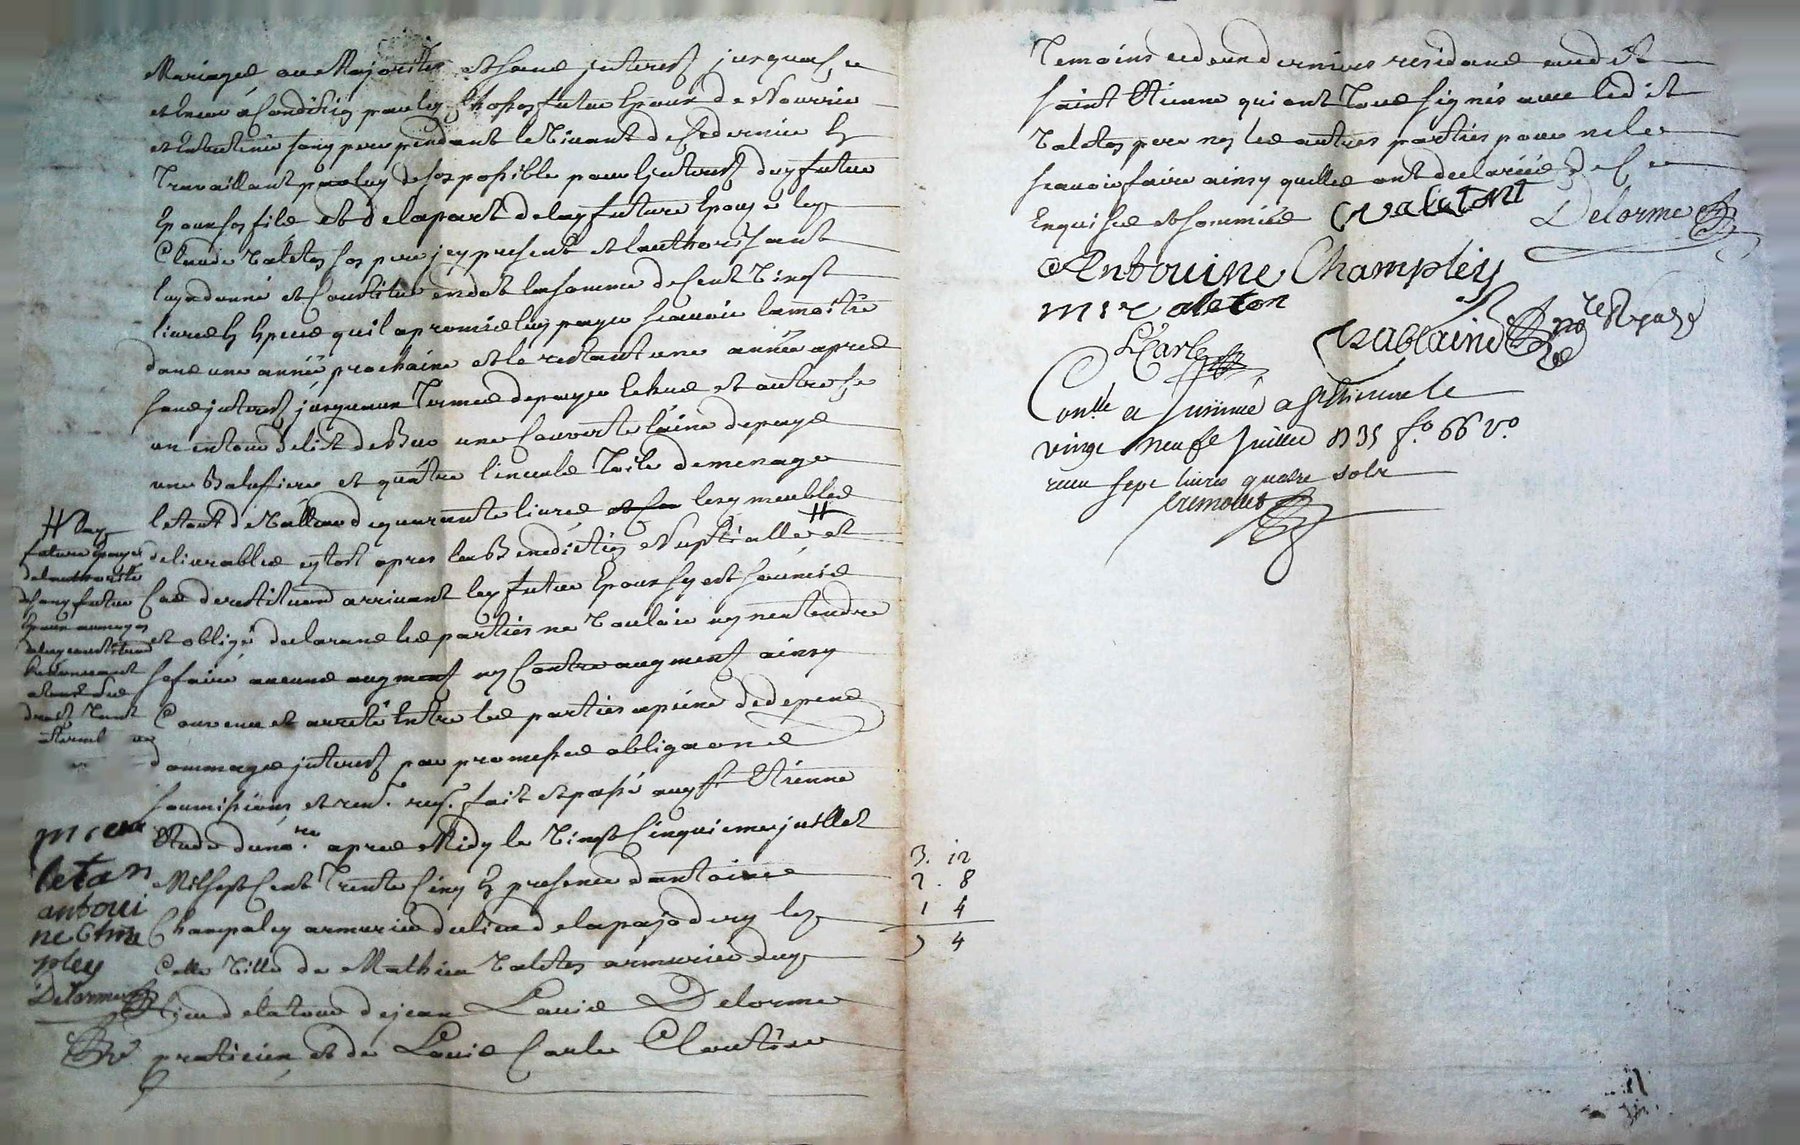 Mariages ou Majorités et sans interest jusques a ce
et encor a Condition par led. futur Epoux de Nourrir
et Entretenir son pere pendant le Vivant de ce dernier En
Travaillant par luy de son possible pour linterest dud. futur
Epoux son fils et de la part de lad. future Epouse led.
Claude Valeton son pere icy present et lauthorisant
luy a donné et Constitué en dot la somme de Cent Vingt
livres En Especes quil a promis luy payer scavoir la moitié
dans une année prochaine et le restant une année apres
sans interest jusquaux Termes de payer Echus et outre ce
un entour de lit de une Couverte laine de pays
une et quatre linceuls Toile de menage
le tout de Valleur de quarante livres lesd. meubles
delivrables après la Benediction Nuptialle et #
Cas de restitution arrivant led. futur Epoux sy est soumis
et obligé declarant les parties ne Vouloir ny nentendre
se faire aucuns augment ny Contre augment ainsy
Convenu et arreté Entre les parties a peine de depens
dommages interest par promesses obligaons
soumissions et ren. fait et passé aud. St Etienne
Etude du no.re apres Midy le Vingt Cinquieme juillet
Mil sept Cent Trente Cinq En presence dantoine
Champaley armurier du lieu de la pajodery lez
Cette Ville de Mathieu Valeton armurier du
lieu de la tour de jean Louis Delorme
praticien et de Louis Carle Cloutier
#
future Epouse
de lauthorité
de son futur
Epoux
Renonceant
a tous ses
droits Tant
m
leton
antoui
ne Cham
pley
Delorme
3. 12
2. 8
1 4
4
Temoins ces deux derniers residans aud. St
saint Etienne qui ont Tous signés avec ledit
Valeton pere non les autres parties pour ne le
scavoir faire ainsy quelles ont declarées de ce
Enquises et sommées C valetont Delorme
Antouine Champley
m valeton
LCarle no.re
Con.lle a St Etienne le
vingt neufe juillet 1735 f.o 66 v.o
recu sept livres quatre sols